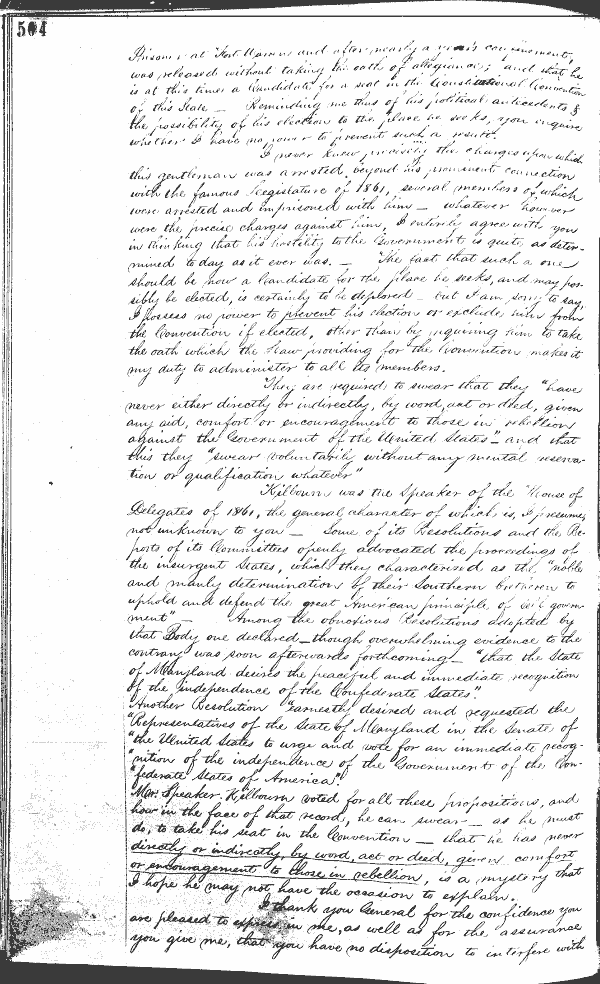 504
Prison at Fort Warren and after nearly a year's confinement,
was released without taking the oath of allegiance; and that he
is at this time a Candidate for a seat in the Constitutional Convention
of this State — Reminding me thus of his political antecedents &
the possibility of his election to the place he seeks, you inquire
whether I have no power to prevent such a result.
I never knew precisely the charges upon which
this gentleman was arrested, beyond his prominent connection
with the famous Legislature of 1861, several members of which
were arrested and imprisoned with him — whatever however
were the precise charges against him, I entirely agree with you
in thinking that his hostility to the Government is quite as deter-
mined to day as it ever was. — The fact that such a one
should be now a Candidate for the place he seeks, and may pos-
sibly be elected, is certainly to be deplored — but I am sorry to say,
I possess no power to prevent his election or exclude him from
the Convention if elected, other than by requiring him to take
the oath which the Law providing for the Convention makes it
my duty to administer to all its members.
They are required to swear that they "have
never either directly or indirectly, by word, act or deed, given
any aid, comfort or encouragement to those in rebellion
against the Government of the United States" — and that
this they "swear voluntarily without any mental reserva-
tion or qualification whatever"
Kilbourn was the Speaker of the House of
Delegates of 1861, the general character of which is, I presume,
not unknown to you — Some of its Resolutions and the Re-
ports of its Committees openly advocated the proceedings of
the insurgent States, which they characterised as the "noble
and manly determination of their Southern brethren to
uphold and defend the great American principle of self govern-
ment" — Among the obnoxious Resolutions adopted by
that Body one declared — though overwhelming evidence to the
contrary was soon afterwards forthcoming — "that the State
of Maryland desires the peaceful and immediate recognition
of the independence of the Confederate States."
Another Resolution "earnestly desired and requested the
"Representatives of the State of Maryland in the Senate of
"the United States to urge and vote for an immediate recog-
"nition of the independence of the Government of the Con-
"federate States of America".
Mr. Speaker Kilbourn voted for all these propositions, and
how in the face of that record, he can swear — as he must
do, to take his seat in the Convention — that he has never
directly or indirectly, by word, act or deed, given comfort
or encouragement to those in rebellion, is a mystery that
I hope he may not have the occasion to explain.
I thank you General for the confidence you
are pleased to express in me, as well as for the assurance
you give me, that you have no disposition to interfere with